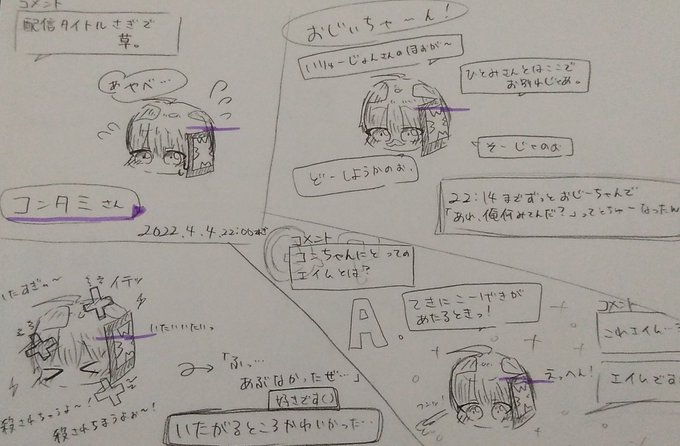 コメント
配信タイトルさぎで
草。
あやべ…
コンタミさん
2022.4.4.22:00枠
おじぃちゃ〜ん!
いりゅーじょんさんのほおが〜
ひとみさんとはここで
お別れじゃあ。
そーじゃのお
どーしようかのお、
22:14までずっとおじーちゃんで
「あれ、俺何みてんだ?」ってとちゅーなったん
コメント
コンちゃんにとっての
エイムとは?
A.
てきにこーげきが
あたるときっ!
えっへん!
フンッ!
コメント
これエイム…
エイムです
いたすぎぃ〜
イテッ
いたいいたいっ
殺されちゃうよ〜!
殺されちゃうよぉ〜!
→「ふっ…
あぶなかったぜ…」
好きです()
いたがるところかわいかった…